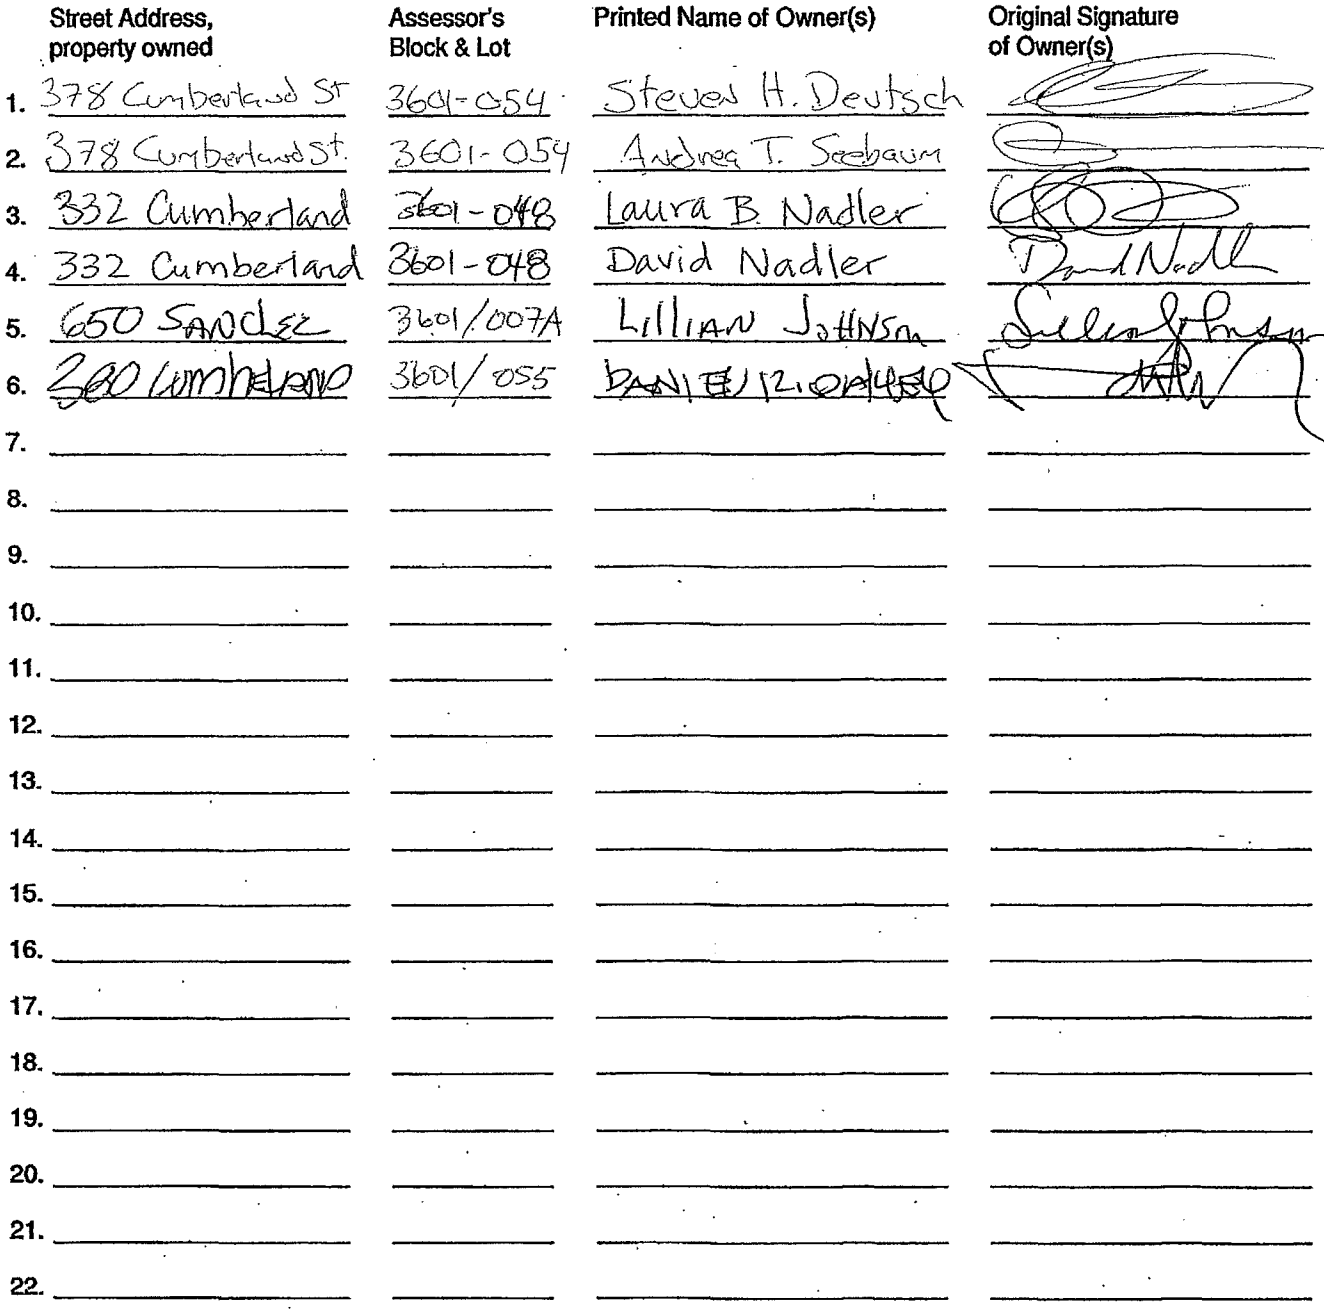 Street Address, property owned Assessor's Block & Lot Printed Name of Owner(s) Original Signature of Owner(s)
1. 378 Cumberland St 3601-054 Steven H. Deutsch
2. 378 Cumberland St. 3601-054 Andrea T. Seebaum
3. 332 Cumberland 3601-048 Laura B. Nadler
4. 332 Cumberland 3601-048 David Nadler David Nadler
5. 650 SANCHEZ 3601/007A LILLIAN JOHNSON Lillian Johnson
6. 380 3601/055 DANIEL
7.
8.
9.
10.
11.
12.
13.
14.
15.
16.
17.
18.
19.
20.
21.
22.